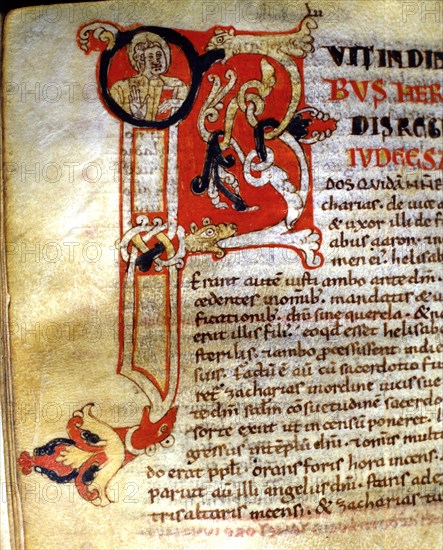 VIT IN DIE
BVS HER
DIS REG
IVDEE SA
dos quidā nomi
charias. de uice a
& uxor illi de f
abus aaron. & n
men ei helisab
Erant autē iusti ambo ante dm̄
cedentes in omnib; mandatis &
ficationib; dn̄i sine querela. & n
erat illis fili'. eo qd esset helisab
sterilis. & ambo processissent in die
suis. Factū ē aū cū sacerdotio fu
ret zacharias in ordine uicis sue
te dm̄. scdm̄ consuetudinē sacerdo
sorte exiit ut incensū poneret.
gressus in tēplū dn̄i. & omis mult
do erat ppli orans foris hora incensi.
paruit aū illi angelus dn̄i. stans ad
tris altaris incensi. & zacharias tu